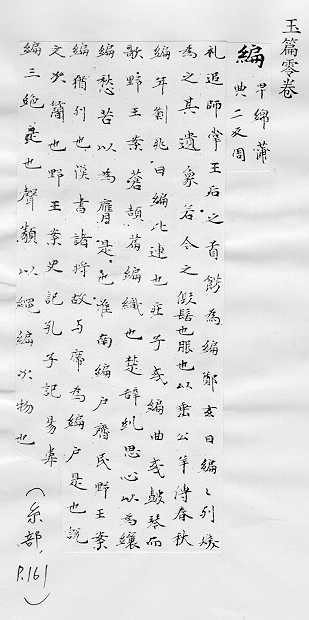 玉篇零卷
編 卑綿蒲
典二反周
礼追師掌王后之首餝為編鄭玄曰編〻列髮
為之其遺象若今之假髻也服也以垂公羊傳春秋
編年劉兆曰編比連也莊子或編曲或鼓琴而
歌野王案蒼頡篇編織也楚辞糺思心以為纕
編愁苦以為膺是也淮南編戸齊民野王案
編猶列也漢書諸将故与帝為編戸是也說
文次簡也野王案史記孔子記易韋
編三絶是也聲類以繩編次物也
(糸部,
P.161)